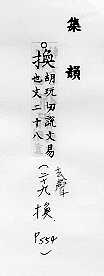 集韻
換 胡玩切說文易
也文二十八
去聲
(二十九換
P554)